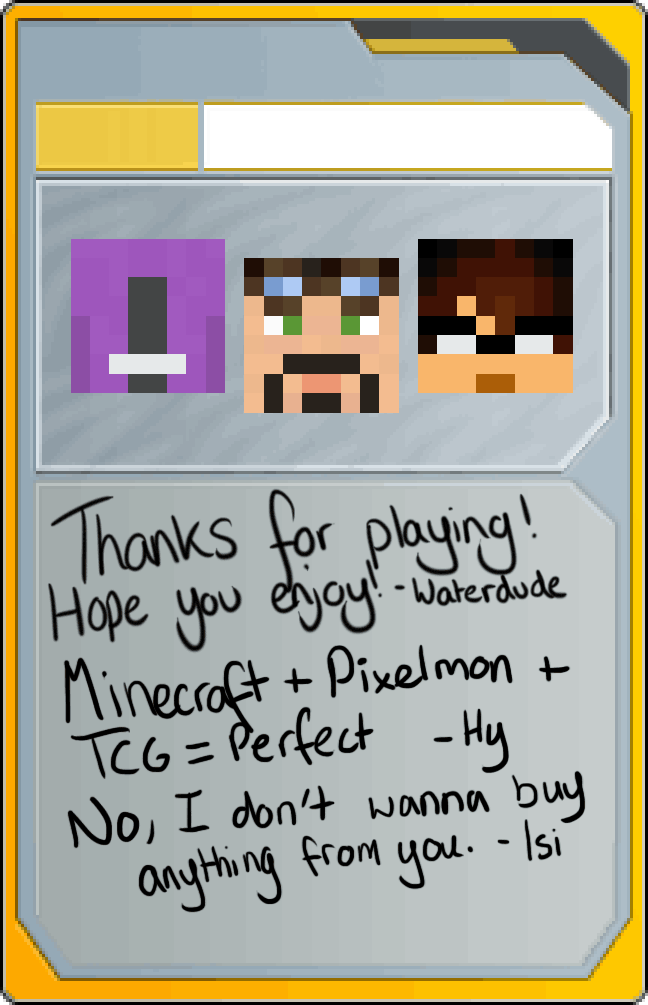 Thanks for playing!
Hope you enjoy! -Waterdude
Minecraft + Pixelmon +
TCG = Perfect -Hy
No, I don't wanna buy
anything from you. -Isi